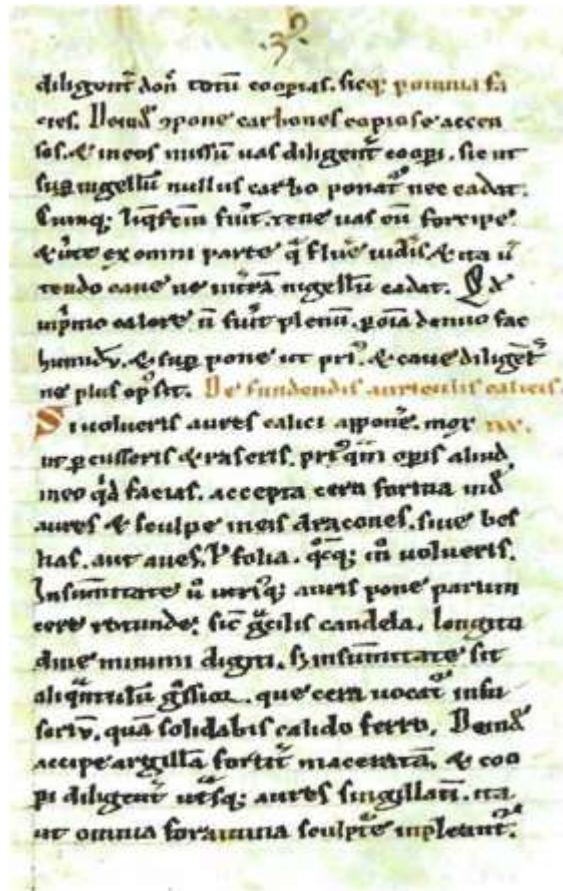 diligent̄ don̄ totū coop̱ias. sicq; p̱ omnia fa
cies. Deinđ ꝯpone carbones copiose accen
sos. & in eos missū uas diligent̄ coop̱i. sic ut
sup̱ nigellū nullus carbo ponat᷑ nec cadat.
Cumq; liq̄fc̄m fuīt. tene uas cū forcipe
& ūte ex omni parte q̄ fluē uidīs. & ita ū
tendo caue ne in t̄rā nigellū cadat. Qđ
inprimo calore n̄ fuīt plenū. p̱ om̄ia denuo fac
humidū. & sup̱ pone ut priꝰ. & caue diligēt̄
ne plus opꝰ sit. De fundendis auriculis calicis.
Si uolueris aures calici apponē. mox xxx.
ut p̱cusseris & raseris. priꝰ q̄m op̱is aliud
in eo q̇d facias. accepta cera forma inđ
aures & sculpe in eis dracones. siue bes
tias. aut aues. ł folia. q̄cq; m̊ uolueris.
Insūmitate ū̊ utriꝰq; auris pone parum
cere rotunde. sic̄ g̊cilis candela. longitu
dine minimi digiti. s; insūmitate sit
aliq̄ntulū g̊ssior. que cera uocat᷑ infu
soriū. quā solidabis calido ferro. Deinđ
accipe argillā fortit̄ maceratā. & coo
p̱i diligent̄ ut̊sq; aures singillatī. ita
ut omnia foramina sculpt̄e inpleant᷑.